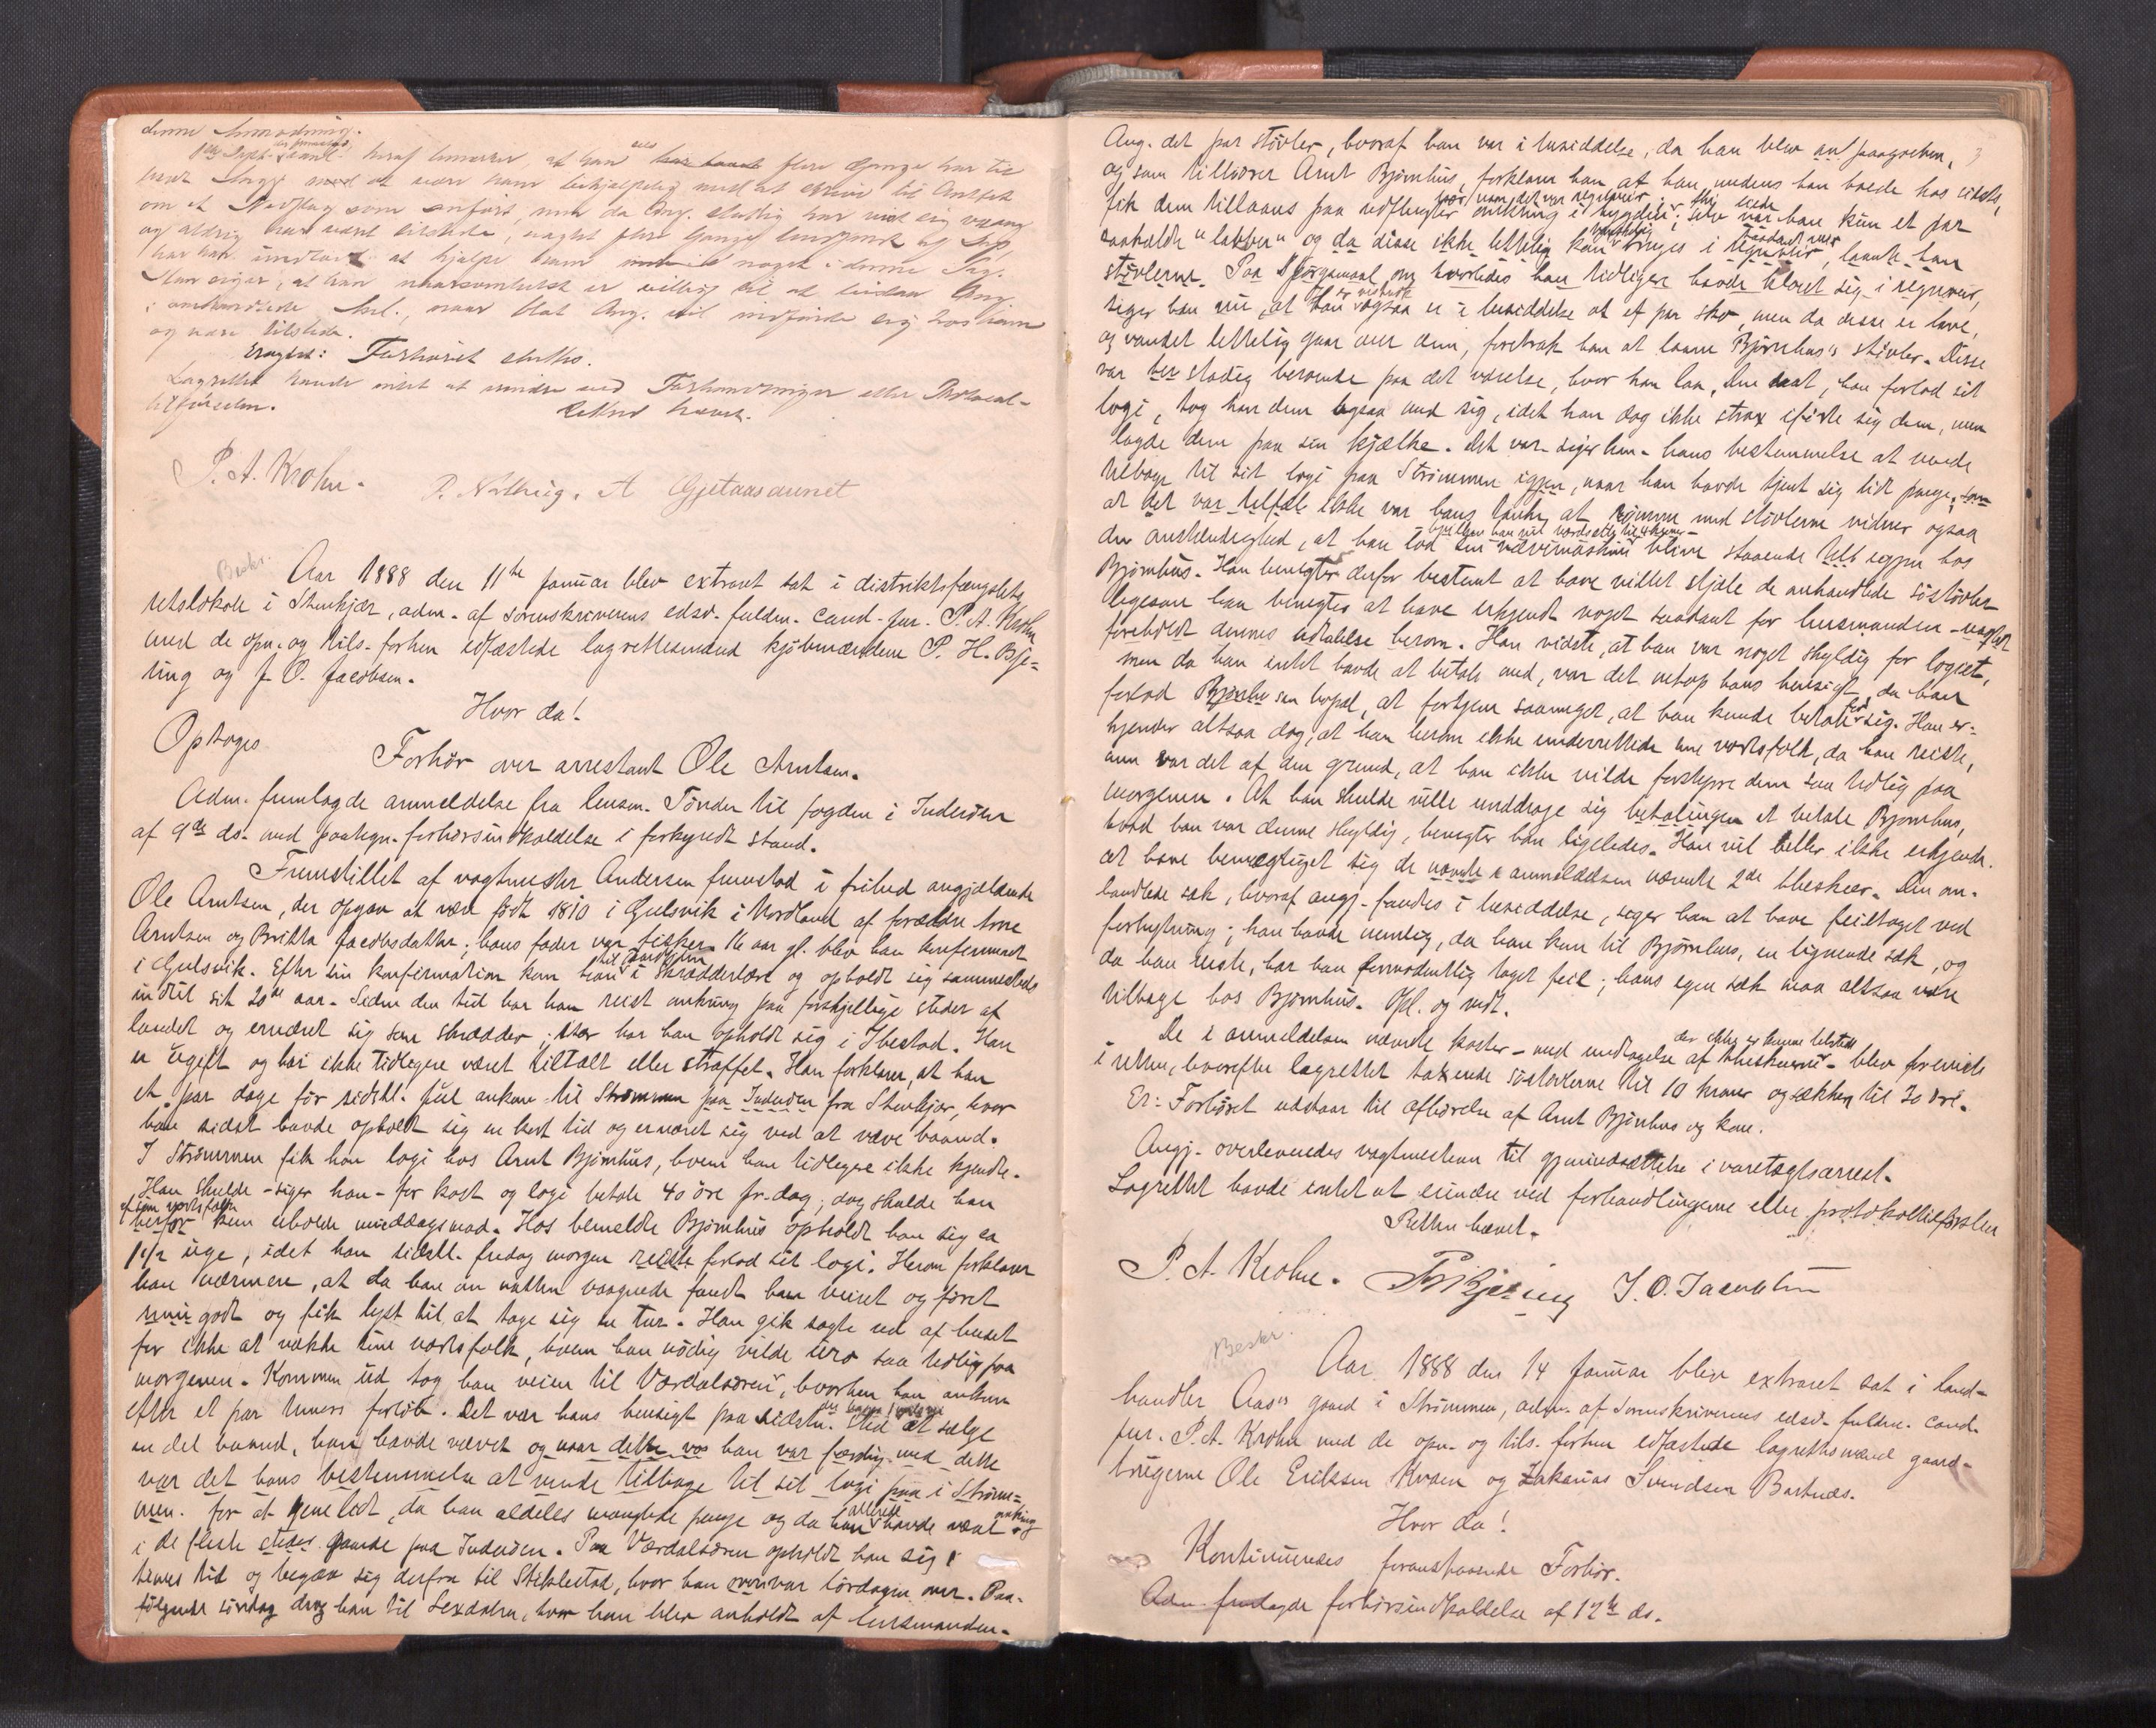 denne Anmodning.
og aldrig har været tilstede, uagtet flere Gange
har han undladt at hjelpe ham noget i denne Sag.
Han siger, at han naarsomhelst er villig til at bistaa Ang.
naar blot Ang. vil indfinde sig hos ham
og være tilstede.
Eragtet: Forhøret sluttes.
Lagrettet havde intet at erindre ved Forhandlingen eller Protocol-
tilførselen.
Retten hævet.
P. A. Krohn. A Gjetaasaunet
Beskr.
Aar 1888 den 11te januar blev extraret sat i distriktsfængslets
retslokale i Stenkjær, adm. af sorenskriverens edsv. fuldm. cand. jur. P. A. Krohn
med de opn. og tils. forhen edfæstede lagrettesmænd kjøbmændene P. H. Bje-
ring og J. O. Jacobsen.
Hvor da!
Optoges
Forhør over arrestant Ole Arntsen.
Adm. fremlagde anmeldelse fra lensm. Tønder til fogden i Inderøen
af 9de ds. med paategn. forhørsindkaldelse i forkyndt stand.
Fremstillet af vagtmester Andersen fremstod i frihed angjældende
Ole Arntsen, der opgav at være født 1810 i Gulsvik i Nordland af forældre Arne
Arntsen og Britta Jacobsdatter; hans fader var fisker. 16 aar gl. blev han konfirmeret
i Gulsvik. Efter sin konfirmation kom han i skrædderlære og opholdt sig sammesteds
indtil sit 20de aar. Siden den tid har han reist omkring paa forskjellige steder af
landet og ernæret sig som skrædder; især har han opholdt sig i Ibestad. Han
er ugift og har ikke tidligere været tiltalt eller straffet. Han forklarer, at han
et par dage før sidstl. jul ankom til Strømmen paa Inderøen fra Stenkjær, hvor
han sidst havde opholdt sig en kort tid og ernæret sig ved at væve baand.
I Strømmen fik han logi hos Arnt Bjørnhus, hvem han tidligere ikke kjendte.
Han skulde - siger han - for kost og logi betale 40 øre pr. dag; dog skulde han
af sine vertsfolk
herfor kun erholde middagsmad. Hos bemeldte Bjørnhus opholdt han sig ca
1 1/2 uge, idet han sidstl. fredag morgen reiste forlod sit logi. Herom forklarer
han nærmere, at da han om natten vaagnede fandt han veiret og føret
godt og fik lyst til at tage sig en tur. Han gik sagte ud af huset
for ikke at vække sine vertsfolk, hvem han nødig vilde uro saa tidlig paa
morgenen. Kommen ud tog han veien til Værdalsøren, hvorhen han ankom
efter et par timers forløb. Det var hans hensigt paa sidstn. sted at sælge
en del baand, han havde vævet og naar dette var han var færdig med dette
var det hans bestemmelse at vende tilbage til sit logi paa i Strøm-
men. for at tjene lidt, da han aldeles manglede penge og da han allerede havde været omkring
i de fleste steder gaarde paa Inderøen. Paa Værdalsøren opholdt han sig 1
times tid og begav sig derfra til Stiklestad, hvor han var lørdagen over. Paa-
følgende søndag drog han til Lexdalen, hvor han blev anholdt af lensmanden.
3
Ang. det par støvler, hvoraf han var i besiddelse, da han blev paagreben,
og som tilhører Arnt Bjørnhus, forklarer han, at han, medens han boede hos sidstn.,
fik dem tillaans paa udflugter omkring i bygden, naar det var regnveir; selv eiede han kun et par
saakaldte "labber" og da disse ikke lettelig kan bruges i regnveir, laante han
støvlerne. Paa spørgsmaal om hvorledes han tidligere havde klaret sig i regnveir,
siger han nu, at han ogsaa er i besiddelse af et par sko, men da disse er lave,
og vandet lettelig gaar over dem, foretrak han at laane Bjørnhus's støvler. Disse
var stadig beroende paa det værelse, hvor han laa. Den nat, han forlod sit
logi, tog han dem ogsaa med sig, idet han dog ikke strax iførte sig dem, men
lagde dem paa sin kjælke. Det var - siger han - hans bestemmelse at vende
tilbage til sit logi paa Strømmen igjen, naar han havde tjent sig lidt penge.
at det var ikke var hans tanke at rømme med støvlerne vidner ogsaa
den omstændighed, at han lod sin vævemaskine blive staaende igjen hos
Bjørnhus. Han benegter derfor bestemt at have villet stjæle de omhandlede søstøvler
ligesom han benegter at have erkjendt noget saadant for lensmanden - uagtet
foreholdt dennes udtalelse herom. Han vidste, at han var noget skyldig for logiet,
men da han intet havde at betale med, var det netop hans hensigt, da han
forlod Bjørnhus sin bopæl, at fortjene saameget, at han kunde betale for sig. Han er-
kjender altsaa dog, at han herom ikke underrettede sine vertsfolk, da han reiste,
men var det af den grund, at han ikke vilde forstyrre dem saa tidlig paa
morgenen. At han skulde ville unddrage sig betalingen at betale Bjørnhus,
hvad han var denne skyldig, benegter han ligeledes. Han vil heller ikke erkjende
at have bemægtiget sig de nævnte i anmeldelsen nævnte 2de bleskeer. Den om-
handlede sæk, hvoraf angj. fandtes i besiddelse, siger han at have feiltaget ved
forbytning; han havde nemlig, da han kom til Bjørnhus, en lignende sæk, og
da han reiste, har han formodentlig taget feil; hans egen sæk maa altsaa være
tilbage hos Bjørnhus. Opl. og vedt.
De i anmeldelsen nævnte koster - med undtagelse af der ikke er komne tilstede - blev foreviste
i retten, hvorefter lagrettet taxerede søstøvlerne til 10 kroner og sækken til 20 øre.
Er: Forhøret udstaar til afhørelse af Arnt Bjørnhus og kone.
Angj. overleveredes vagtmesteren til gjenindsættelse i varetægtsarrest.
Lagrettet havde intet at erindre ved forhandlingerne eller protokoltilførslen
Retten hævet.
P. A. Krohn. PHBjering J. O. Jacobsen
Beskr.
Aar 1888 den 14 januar blev extraret sat i land-
handler Aas's gaard i Strømmen, adm. af sorenskriverens edsv. fuldm. cand.
jur. P. A. Krohn med de opn. og tils. forhen edfæstede lagrettesmænd gaard-
brugerne Ole Eriksen Kvam og Zakarias Svendsen Bartnæs.
Hvor da!
Kontinueredes foranstaaende Forhør.
Adm. fremlagde forhørsindkaldelse af 12te ds.